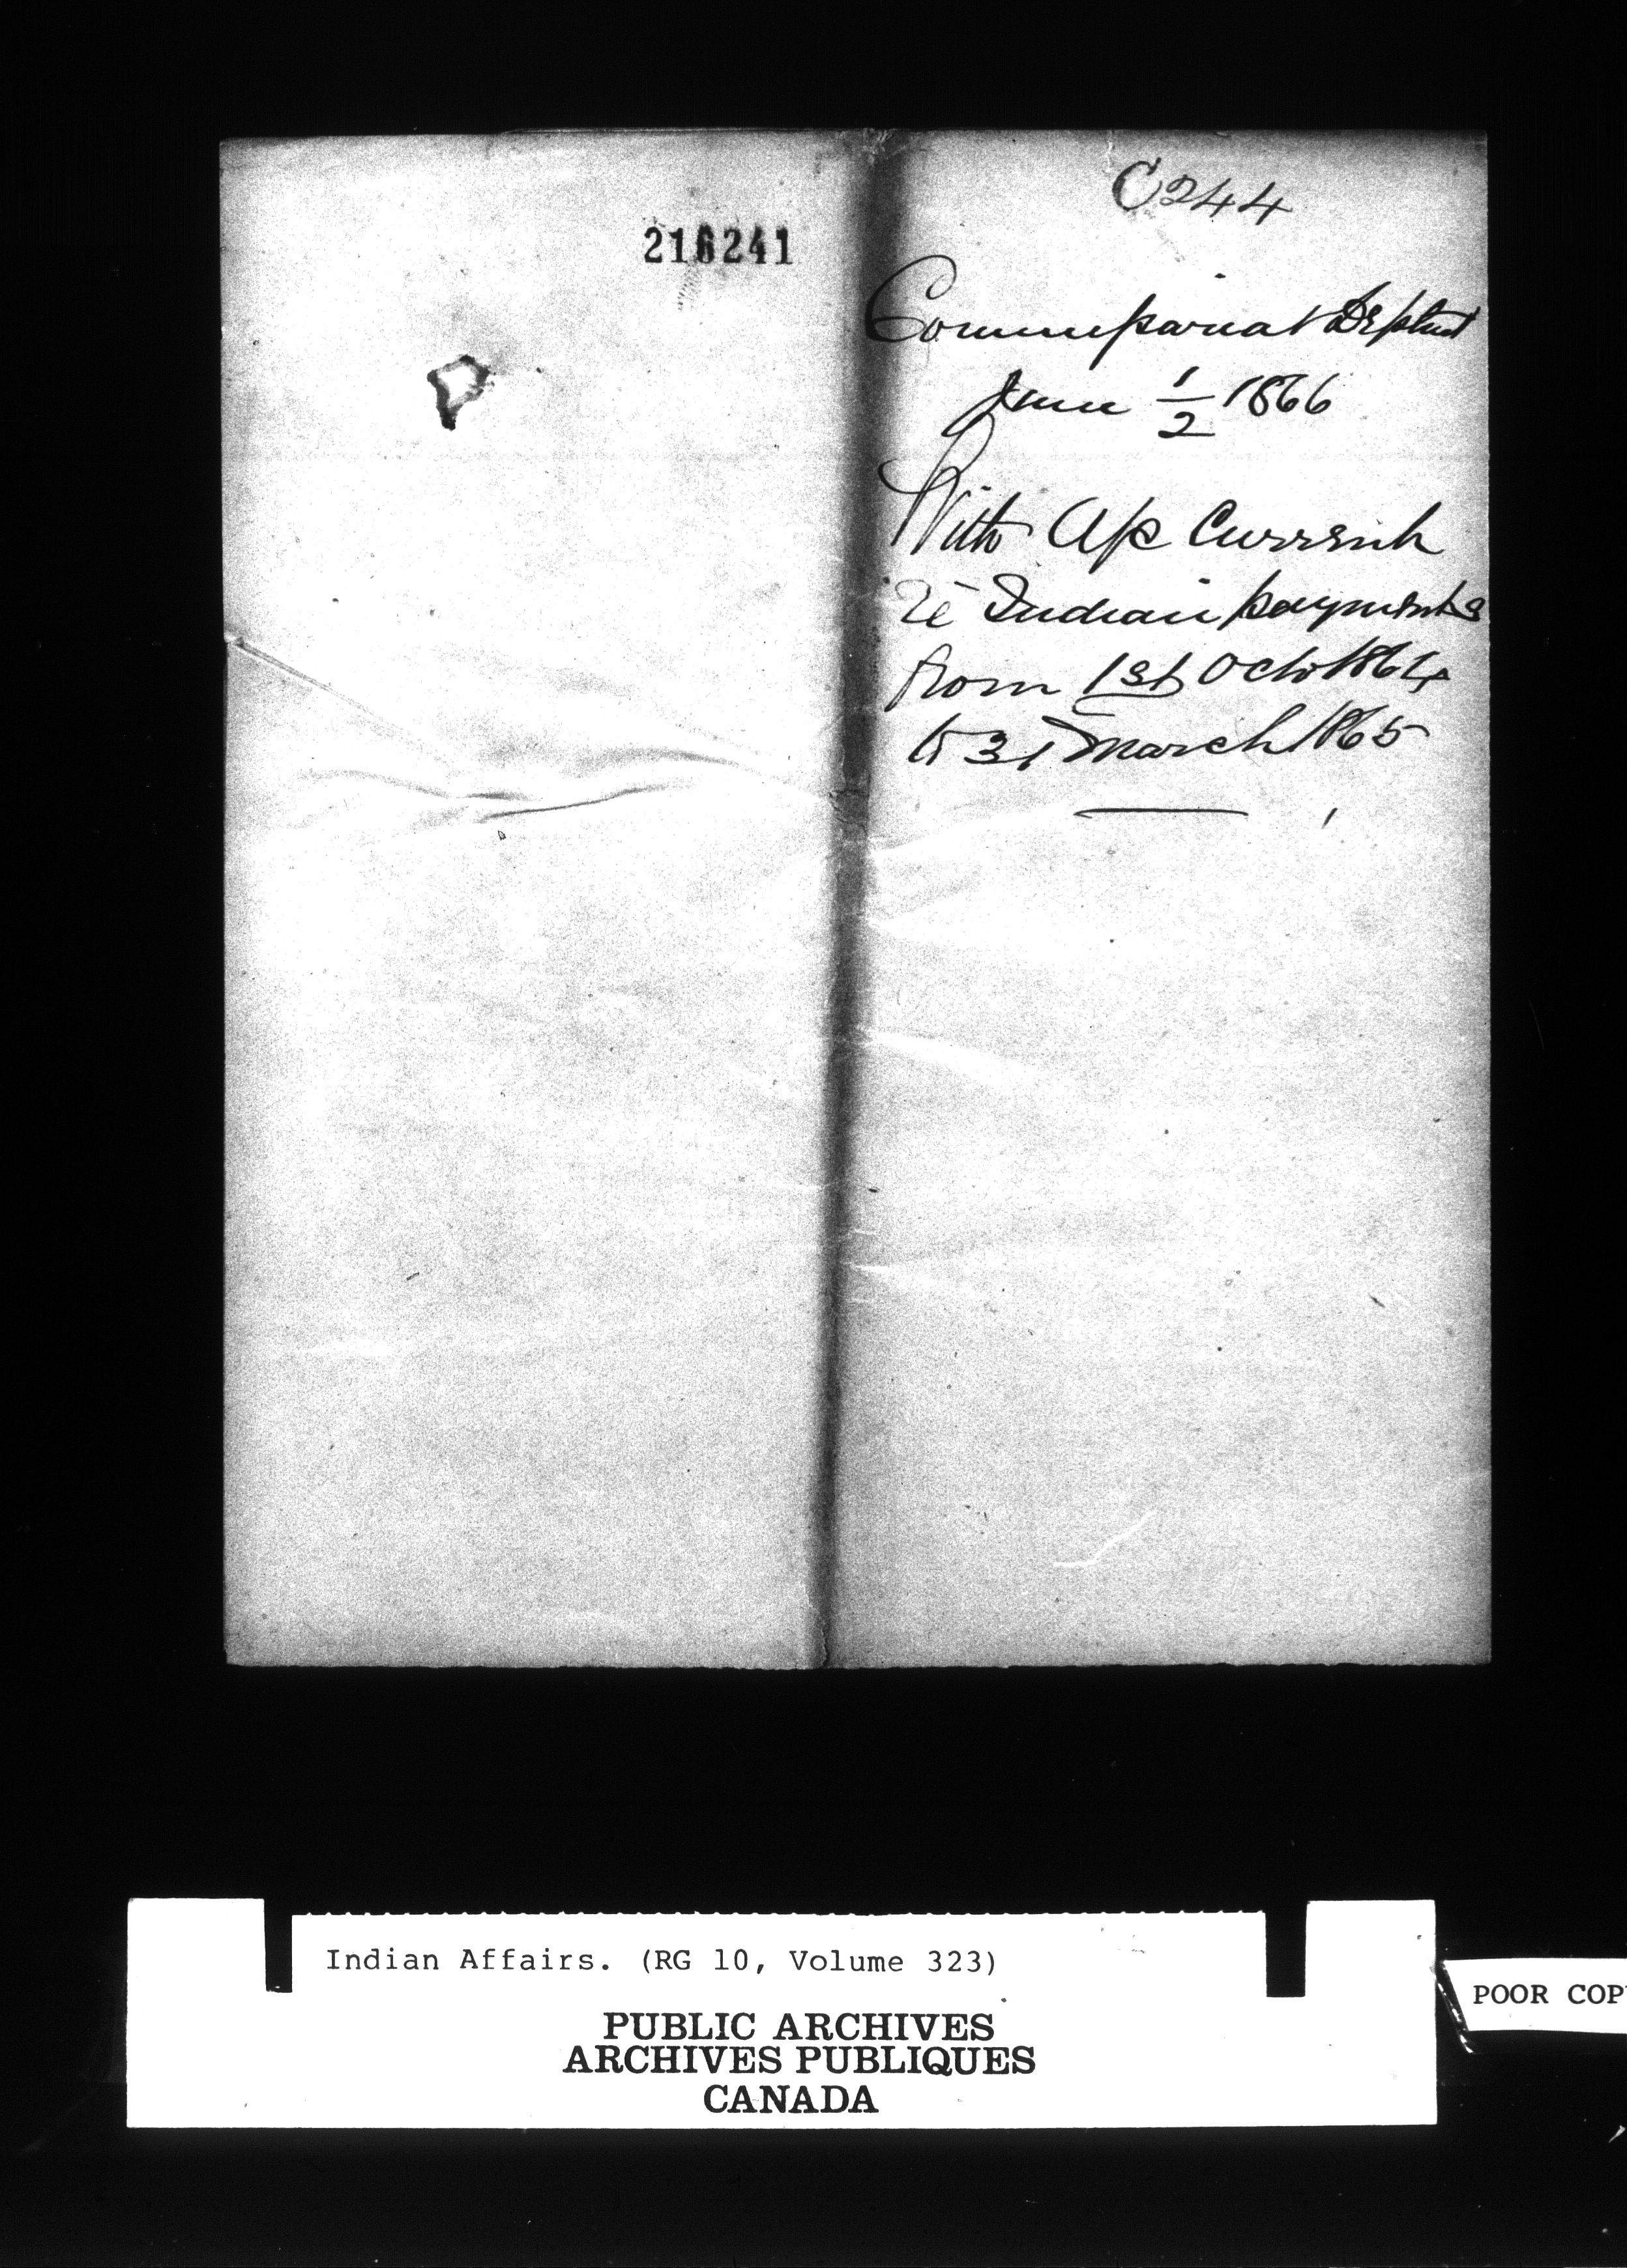 216241
C244
Commissariat Deptmt
June 1/2 1866
With A/c Current
re Indian payments
from 1st Octr 1864
to 31 March 1865
Indian Affairs. (RG 10, Volume 323)
PUBLIC ARCHIVES
ARCHIVES PUBLIQUES
CANADA
POOR COP